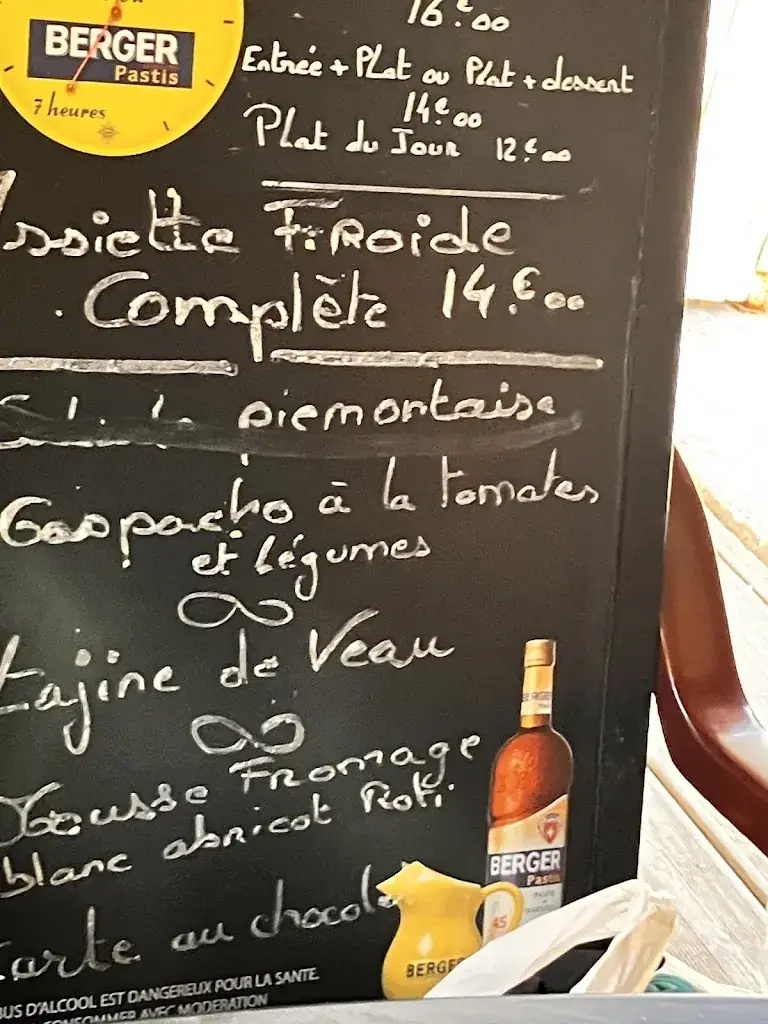 BERGER
Pastis
7 heures
16.€00
Entrée + Plat ou Plat + dessert
14€00
Plat du Jour 12.€00
ssiette Froide
Complète 14.€00
piemontaise
Gaspacho à la tomates
et légumes
Tajine de Veau
Mousse Fromage
blanc abricot Roti
tarte au chocola
BERGER
Pastis
45
BERGE
BUS D'ALCOOL EST DANGEREUX POUR LA SANTE.
CONSOMMER AVEC MODERATION